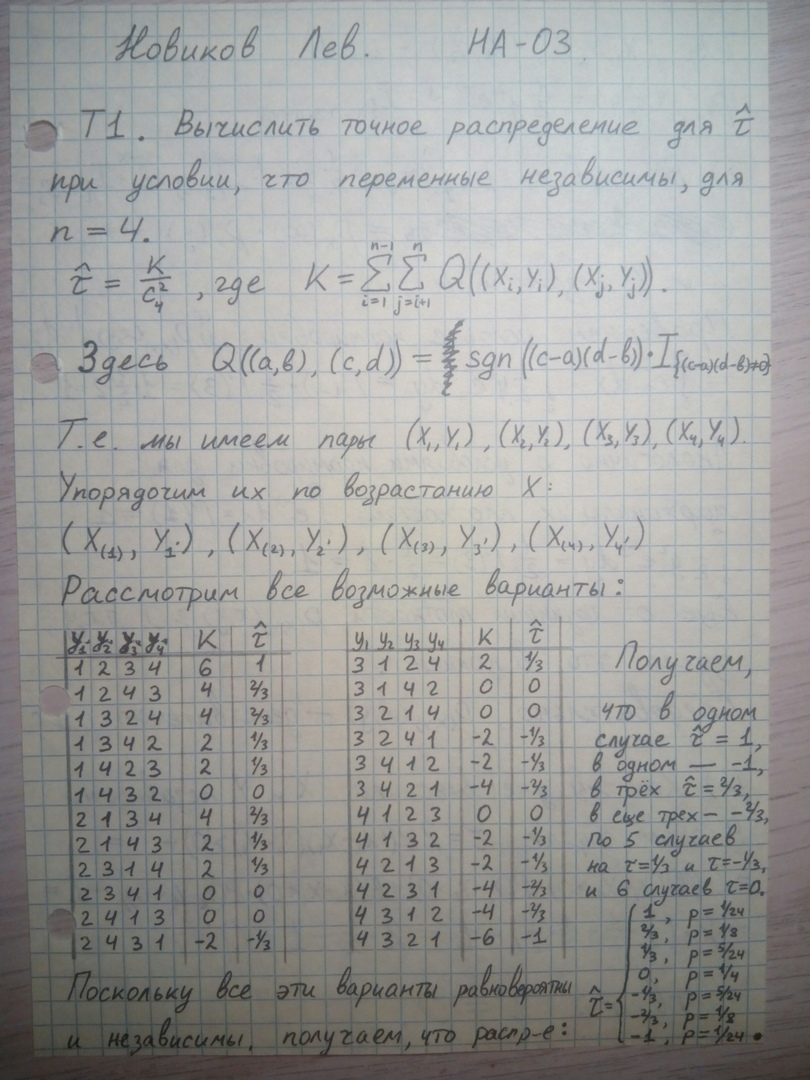 Новиков Лев. НА-03
Т1. Вычислить точное распределение для τ̂
при условии, что переменные независимы, для
n = 4.
τ̂ = K/C₄², где K = ∑_{i=1}^{n-1} ∑_{j=i+1}^{n} Q((Xᵢ,Yᵢ), (Xⱼ,Yⱼ)).
Здесь Q((a,b), (c,d)) = sgn((c-a)(d-b))·I_{{(c-a)(d-b)≠0}}
Т.е. мы имеем пары (X₁,Y₁), (X₂,Y₂), (X₃,Y₃), (X₄,Y₄).
Упорядочим их по возрастанию X:
(X₍₁₎, Y₁'), (X₍₂₎, Y₂'), (X₍₃₎, Y₃'), (X₍₄₎, Y₄')
Рассмотрим все возможные варианты:
y₁' y₂' y₃' y₄' K τ̂
1 2 3 4 6 1
1 2 4 3 4 2/3
1 3 2 4 4 2/3
1 3 4 2 2 1/3
1 4 2 3 2 1/3
1 4 3 2 0 0
2 1 3 4 4 2/3
2 1 4 3 2 1/3
2 3 1 4 2 1/3
2 3 4 1 0 0
2 4 1 3 0 0
2 4 3 1 -2 -1/3
y₁ y₂ y₃ y₄ K τ̂
3 1 2 4 2 1/3
3 1 4 2 0 0
3 2 1 4 0 0
3 2 4 1 -2 -1/3
3 4 1 2 -2 -1/3
3 4 2 1 -4 -2/3
4 1 2 3 0 0
4 1 3 2 -2 -1/3
4 2 1 3 -2 -1/3
4 2 3 1 -4 -2/3
4 3 1 2 -4 -2/3
4 3 2 1 -6 -1
Получаем,
что в одном
случае τ̂ = 1,
в одном — -1,
в трёх τ̂ = 2/3,
в еще трех — -2/3,
по 5 случаев
на τ=1/3 и τ=-1/3,
и 6 случаев τ=0.
Поскольку все эти варианты равновероятны
и независимы, получаем, что распр-е:
τ̂ = {
1, p = 1/24
2/3, p = 1/8
1/3, p = 5/24
0, p = 1/4
-1/3, p = 5/24
-2/3, p = 1/8
-1, p = 1/24.